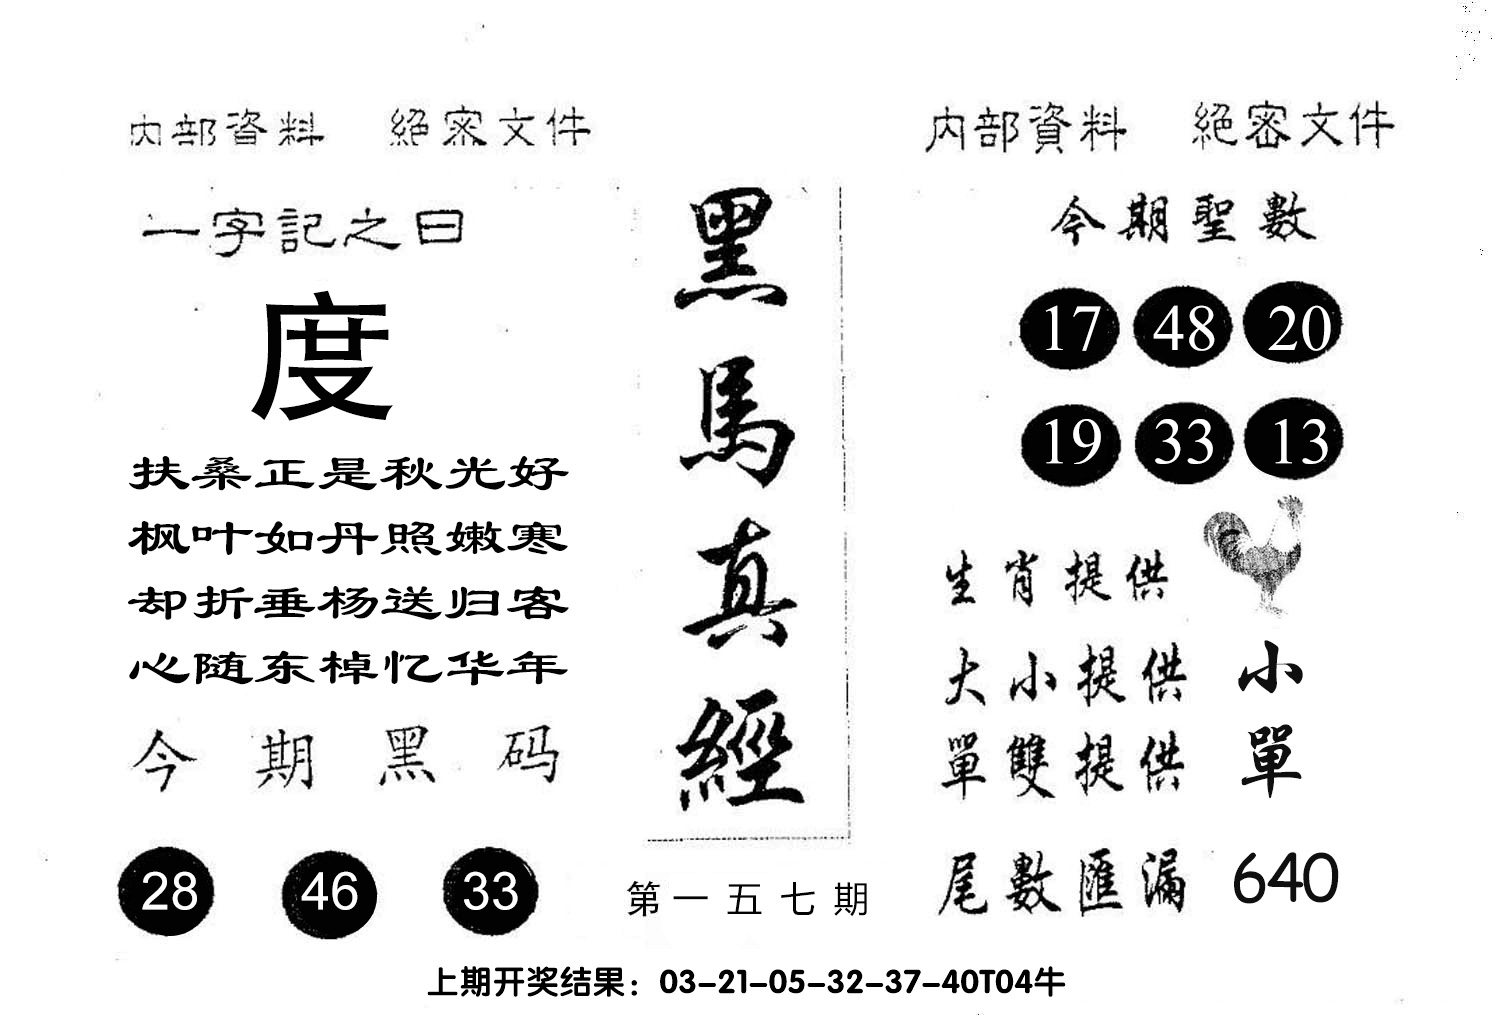 內部資料 絕密文件
一字記之曰
度
扶桑正是秋光好
枫叶如丹照嫩寒
却折垂杨送归客
心随东棹忆华年
今期黑码
28 46 33
黑馬真經
第一五七期
內部資料 絕密文件
今期聖數
17 48 20
19 33 13
生肖提供
大小提供 小
單雙提供 單
尾數匯漏 640
上期开奖结果：03-21-05-32-37-40T04牛